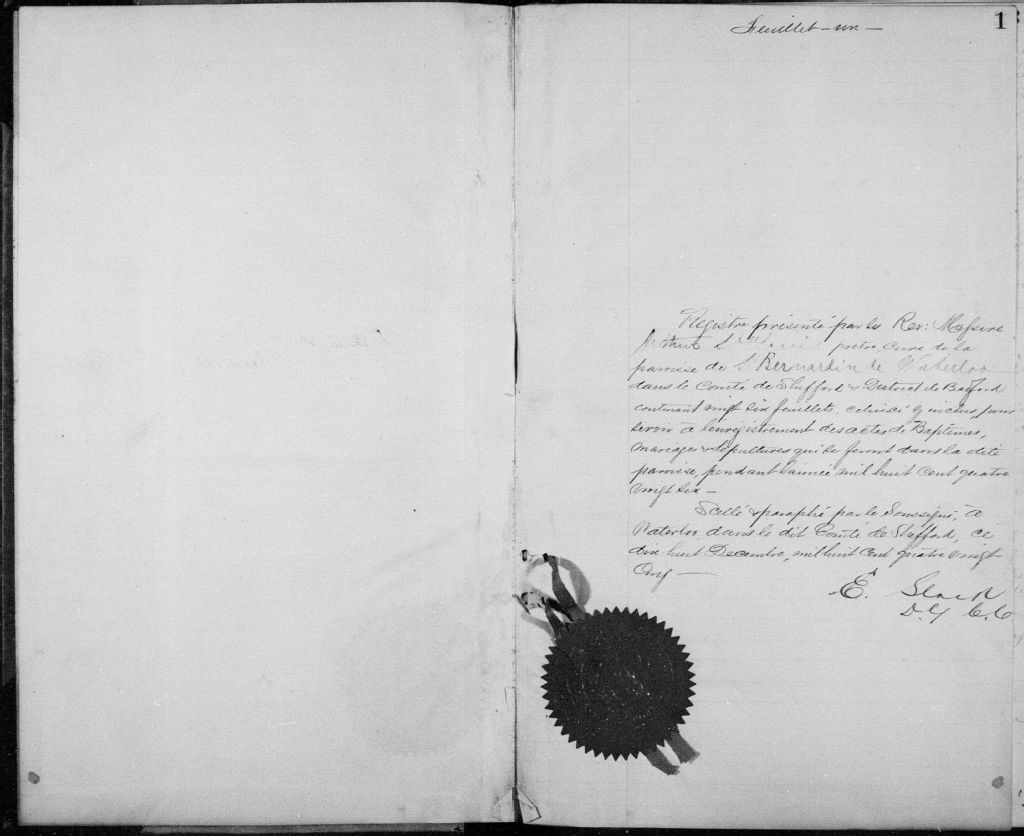 Feuillet - un -
1
Registre présenté par le Rev: Messire
Arthur S prêtre, Curé de la
paroisse de S. Bernardin de Waterloo
dans le Comté de Shefford & District de Bedford
contenant vingt six feuillets, celui ci y inclus, pour
servir à l'enregistrement des actes de Baptêmes,
Mariages & Sépultures qui se feront dans la dite
paroisse, pendant l'année mil huit cent quatre
vingt six -
Scellé & paraphé par le Soussigné, à
Waterloo, dans le dit Comté de Shefford, ce
dix huit Decembre, mil huit cent quatre vingt
Cinq -
E. Slack
D. C.C